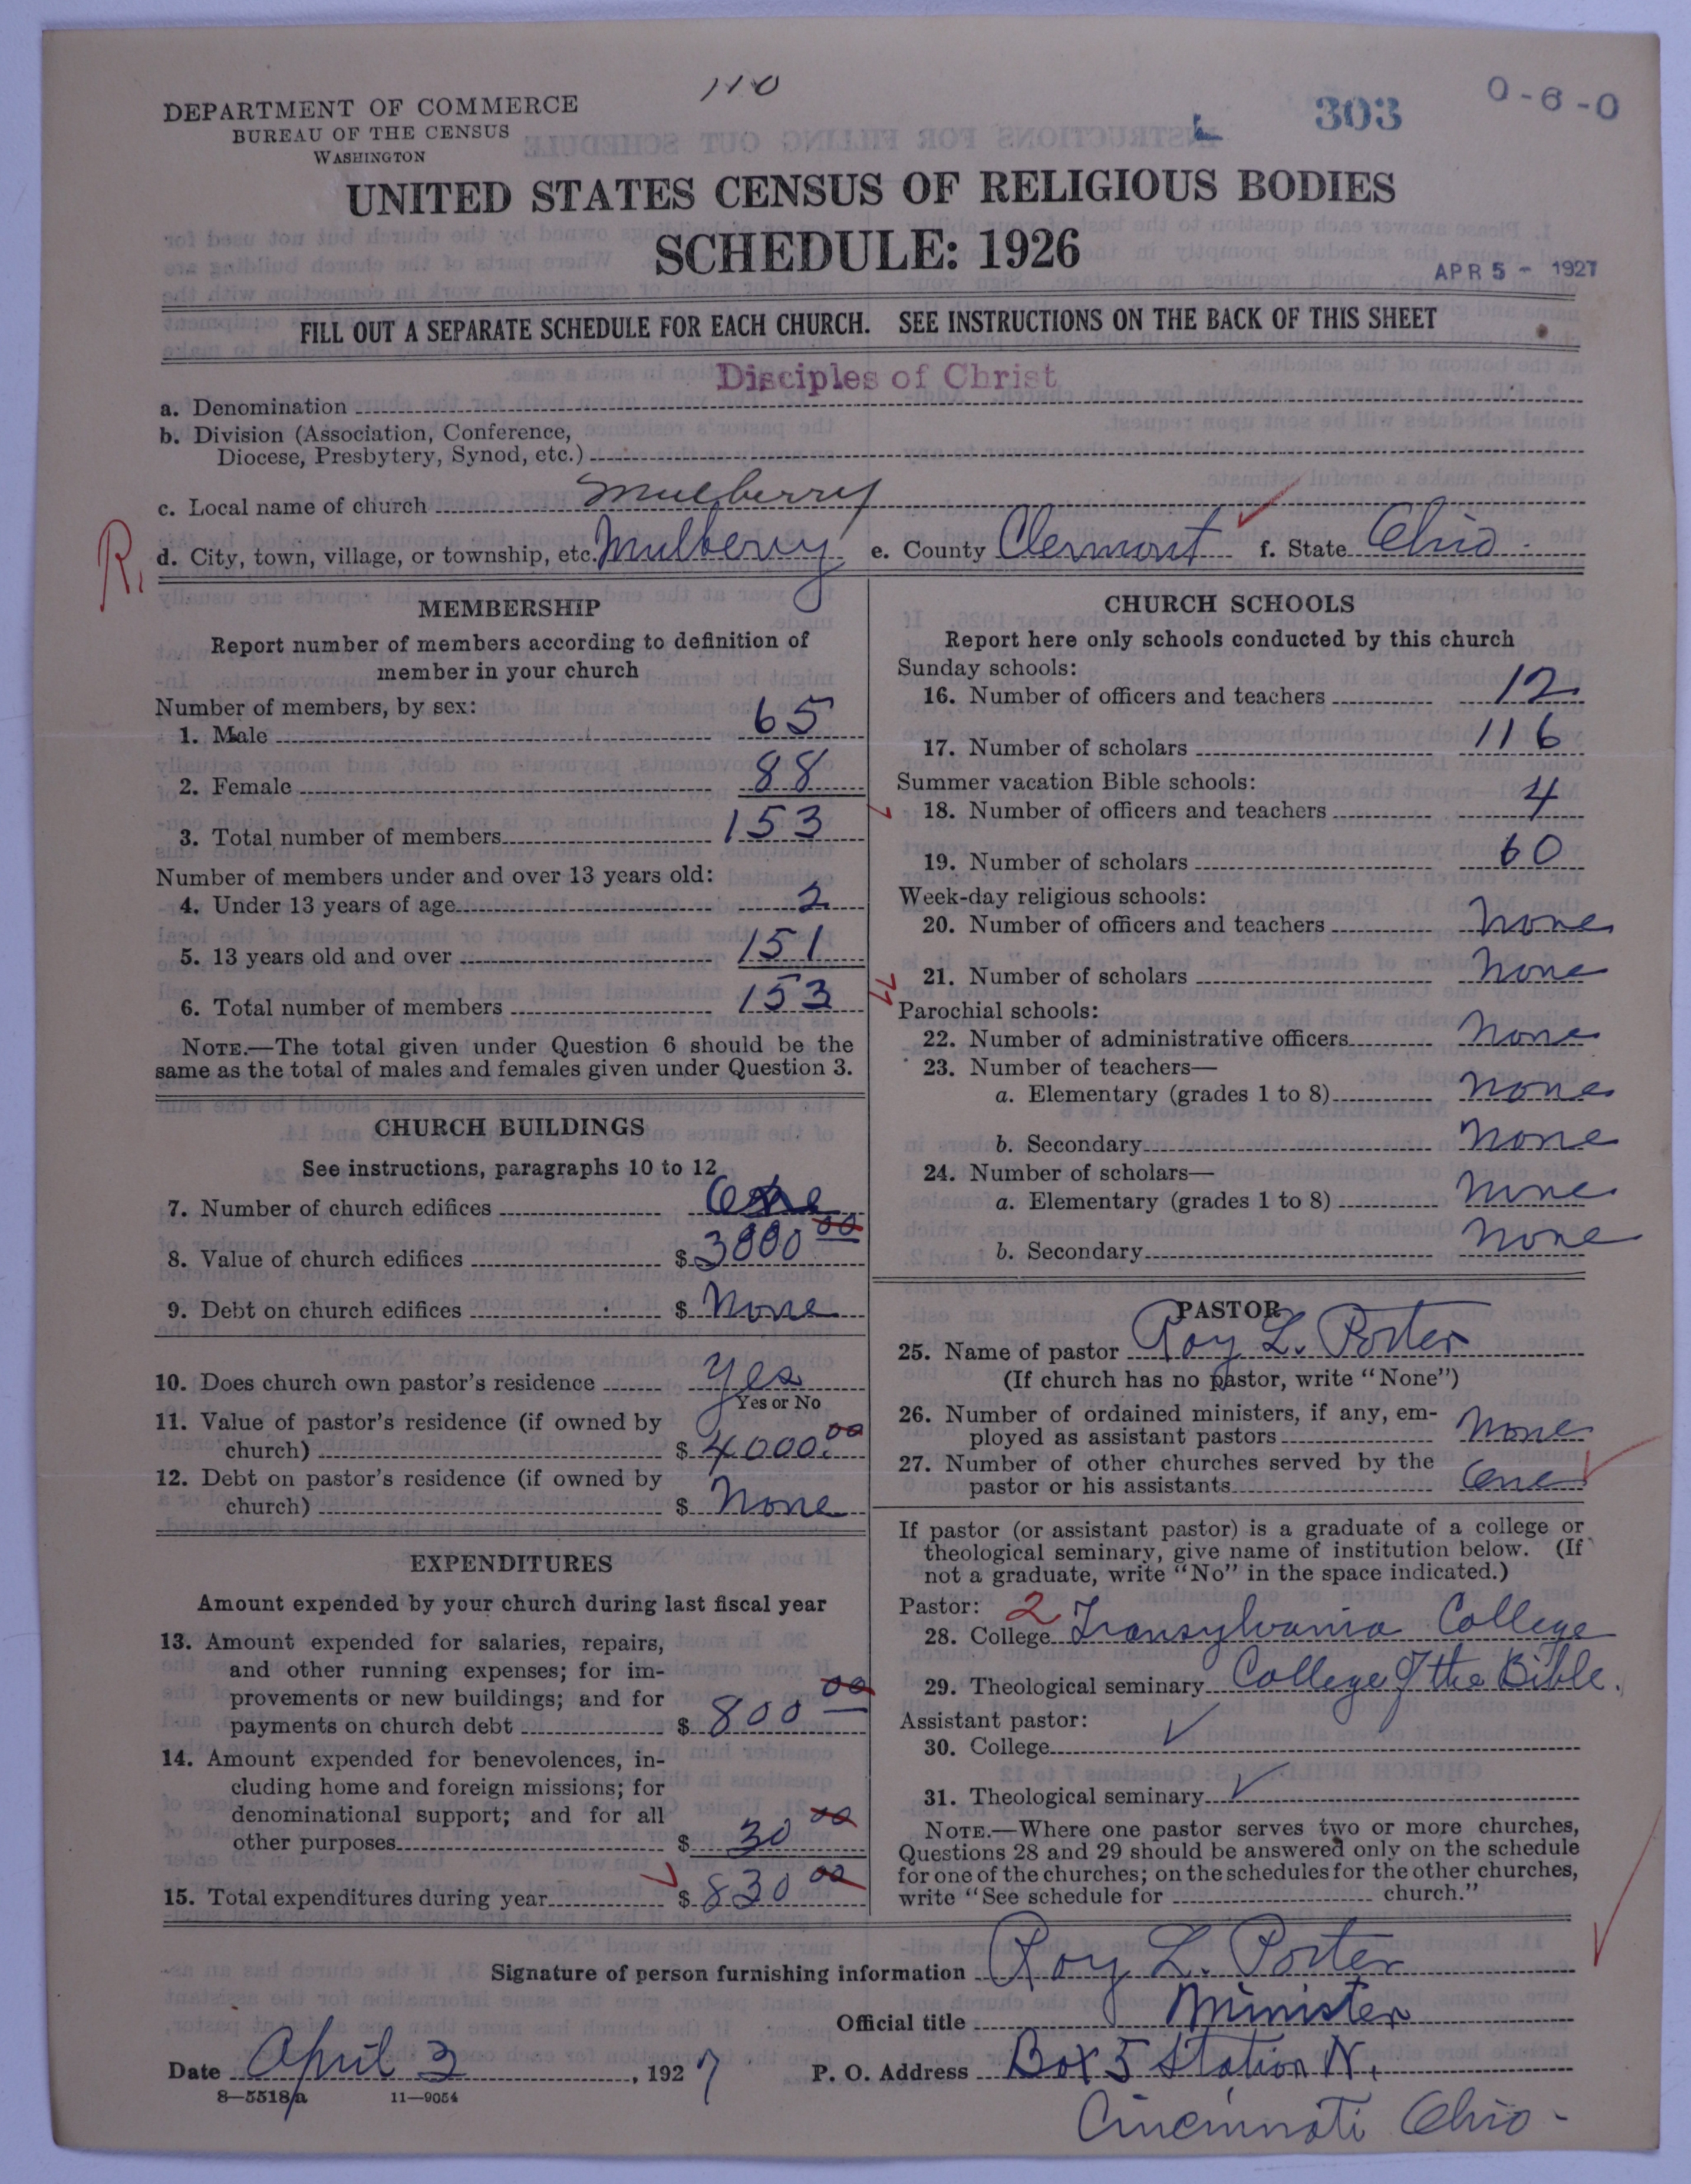 110
DEPARTMENT OF COMMERCE
BUREAU OF THE CENSUS
WASHINGTON
L 303 0-6-0
UNITED STATES CENSUS OF RELIGIOUS BODIES
SCHEDULE: 1926
APR 5 - 1927
FILL OUT A SEPARATE SCHEDULE FOR EACH CHURCH. SEE INSTRUCTIONS ON THE BACK OF THIS SHEET
a. Denomination Disciples of Christ
b. Division (Association, Conference,
Diocese, Presbytery, Synod, etc.)
c. Local name of church Mulberry
R. d. City, town, village, or township, etc. Mulberry e. County Clermont f. State Ohio
MEMBERSHIP
Report number of members according to definition of
member in your church
Number of members, by sex:
1. Male 65
2. Female 88
3. Total number of members 153
Number of members under and over 13 years old:
4. Under 13 years of age 2
5. 13 years old and over 151
6. Total number of members 153
NOTE.—The total given under Question 6 should be the
same as the total of males and females given under Question 3.
CHURCH BUILDINGS
See instructions, paragraphs 10 to 12
7. Number of church edifices One
8. Value of church edifices $ 3000 00
9. Debt on church edifices $ None
10. Does church own pastor's residence Yes
Yes or No
11. Value of pastor's residence (if owned by
church) $ 4000.00
12. Debt on pastor's residence (if owned by
church) $ None
EXPENDITURES
Amount expended by your church during last fiscal year
13. Amount expended for salaries, repairs,
and other running expenses; for im-
provements or new buildings; and for
payments on church debt $ 800 00
14. Amount expended for benevolences, in-
cluding home and foreign missions; for
denominational support; and for all
other purposes $ 30 00
15. Total expenditures during year $ 830 00
CHURCH SCHOOLS
Report here only schools conducted by this church
Sunday schools:
16. Number of officers and teachers 12
17. Number of scholars 116
Summer vacation Bible schools:
18. Number of officers and teachers 4
19. Number of scholars 60
Week-day religious schools:
20. Number of officers and teachers None
21. Number of scholars None
Parochial schools:
22. Number of administrative officers None
23. Number of teachers—
a. Elementary (grades 1 to 8) None
b. Secondary None
24. Number of scholars—
a. Elementary (grades 1 to 8) None
b. Secondary None
PASTOR
25. Name of pastor Roy L. Porter
(If church has no pastor, write "None")
26. Number of ordained ministers, if any, em-
ployed as assistant pastors None
27. Number of other churches served by the
pastor or his assistants One
If pastor (or assistant pastor) is a graduate of a college or
theological seminary, give name of institution below. (If
not a graduate, write "No" in the space indicated.)
Pastor: 2
28. College Transylvania College
29. Theological seminary College of the Bible.
Assistant pastor:
30. College
31. Theological seminary
NOTE.—Where one pastor serves two or more churches,
Questions 28 and 29 should be answered only on the schedule
for one of the churches; on the schedules for the other churches,
write "See schedule for church."
Signature of person furnishing information Roy L. Porter
Official title Minister
Date April 3, 1927 P. O. Address Box 5 Station N.
8—5518a 11—9054
Cincinnati Ohio-